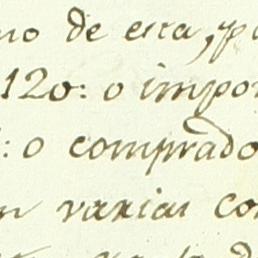 de esta, p
120: o impor
: o comprado
n varias co